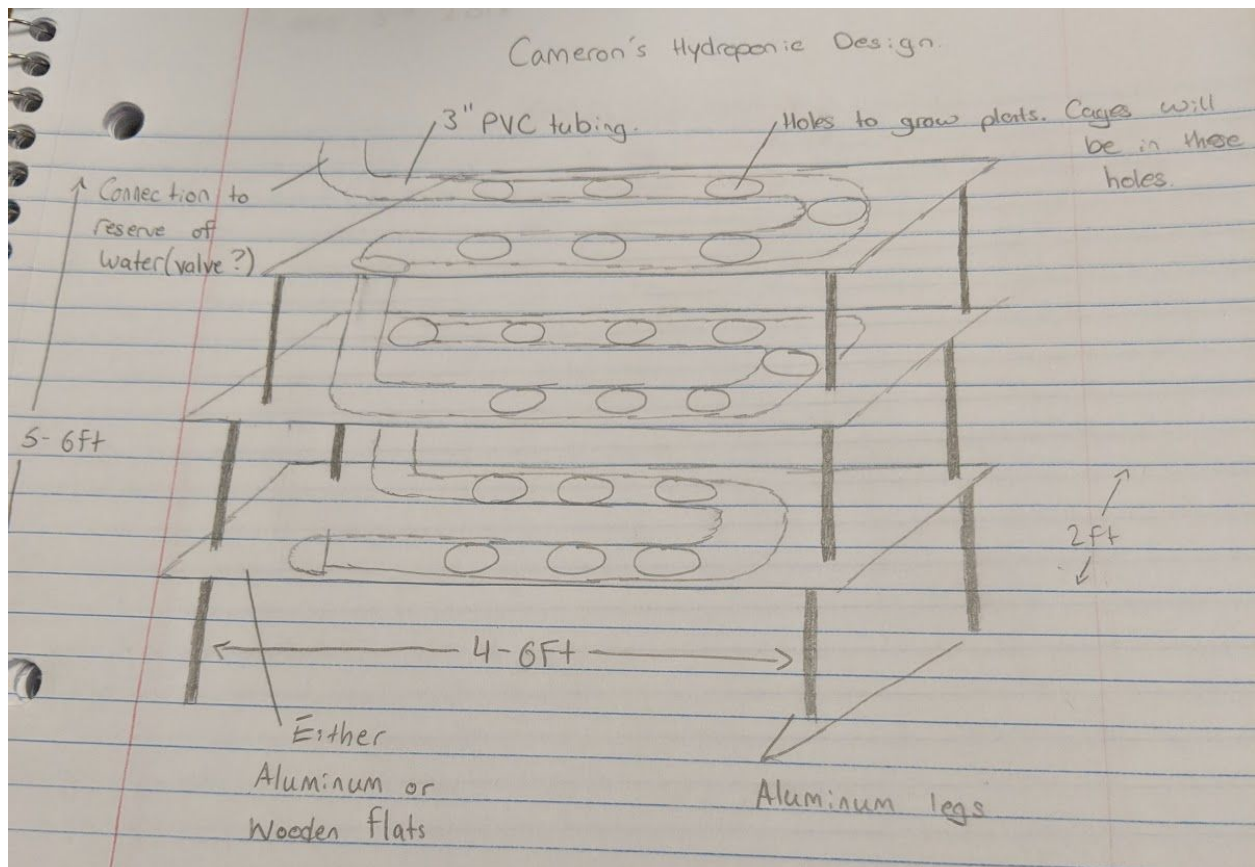 Cameron's Hydroponic Design.
3" PVC tubing.
Holes to grow plants. Cages will
be in these
holes.
Connection to
reserve of
water (valve?)
5-6ft
2ft
4-6Ft
Either
Aluminum or
Wooden flats
Aluminum legs